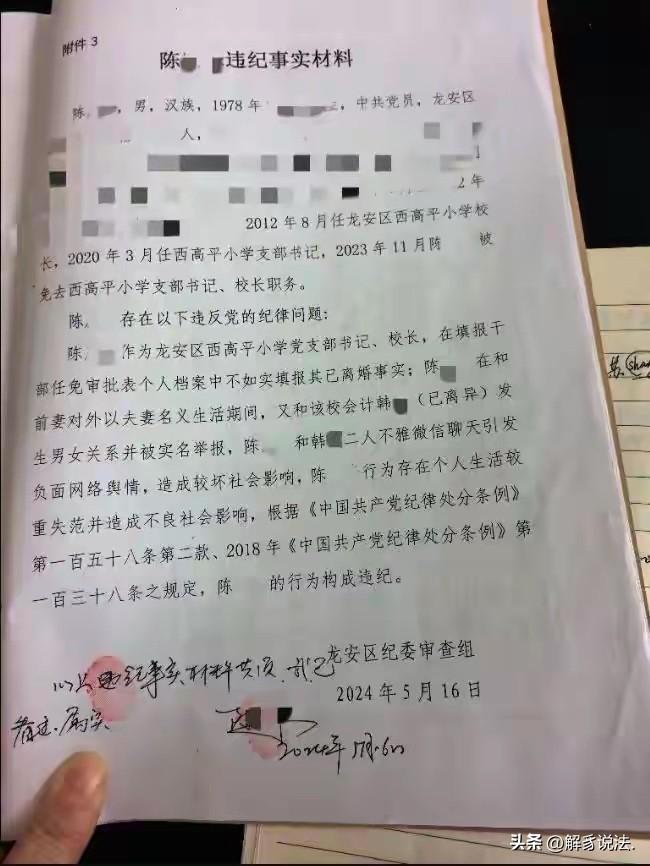 附件 3
陈 违纪事实材料
陈 ，男，汉族，1978 年 ，中共党员，龙安区
人，
2 年
2012 年 8 月任龙安区西高平小学校
长，2020 年 3 月任西高平小学支部书记，2023 年 11 月陈 被
免去西高平小学支部书记、校长职务。
陈 存在以下违反党的纪律问题：
陈 作为龙安区西高平小学党支部书记、校长，在填报干
部任免审批表个人档案中不如实填报其已离婚事实；陈 在和
前妻对外以夫妻名义生活期间，又和该校会计韩 （已离异）发
生男女关系并被实名举报，陈 和韩 二人不雅微信聊天引发
负面网络舆情，造成较坏社会影响，陈 行为存在个人生活较
重失范并造成不良社会影响，根据《中国共产党纪律处分条例》
第一百五十八条第二款、2018 年《中国共产党纪律处分条例》第
一百三十八条之规定，陈 的行为构成违纪。
龙安区纪委审查组
2024 年 5 月 16 日
以上违纪事实材料共 页，我已
看过，属实
2024年5月16日
头条 @解豸说法.